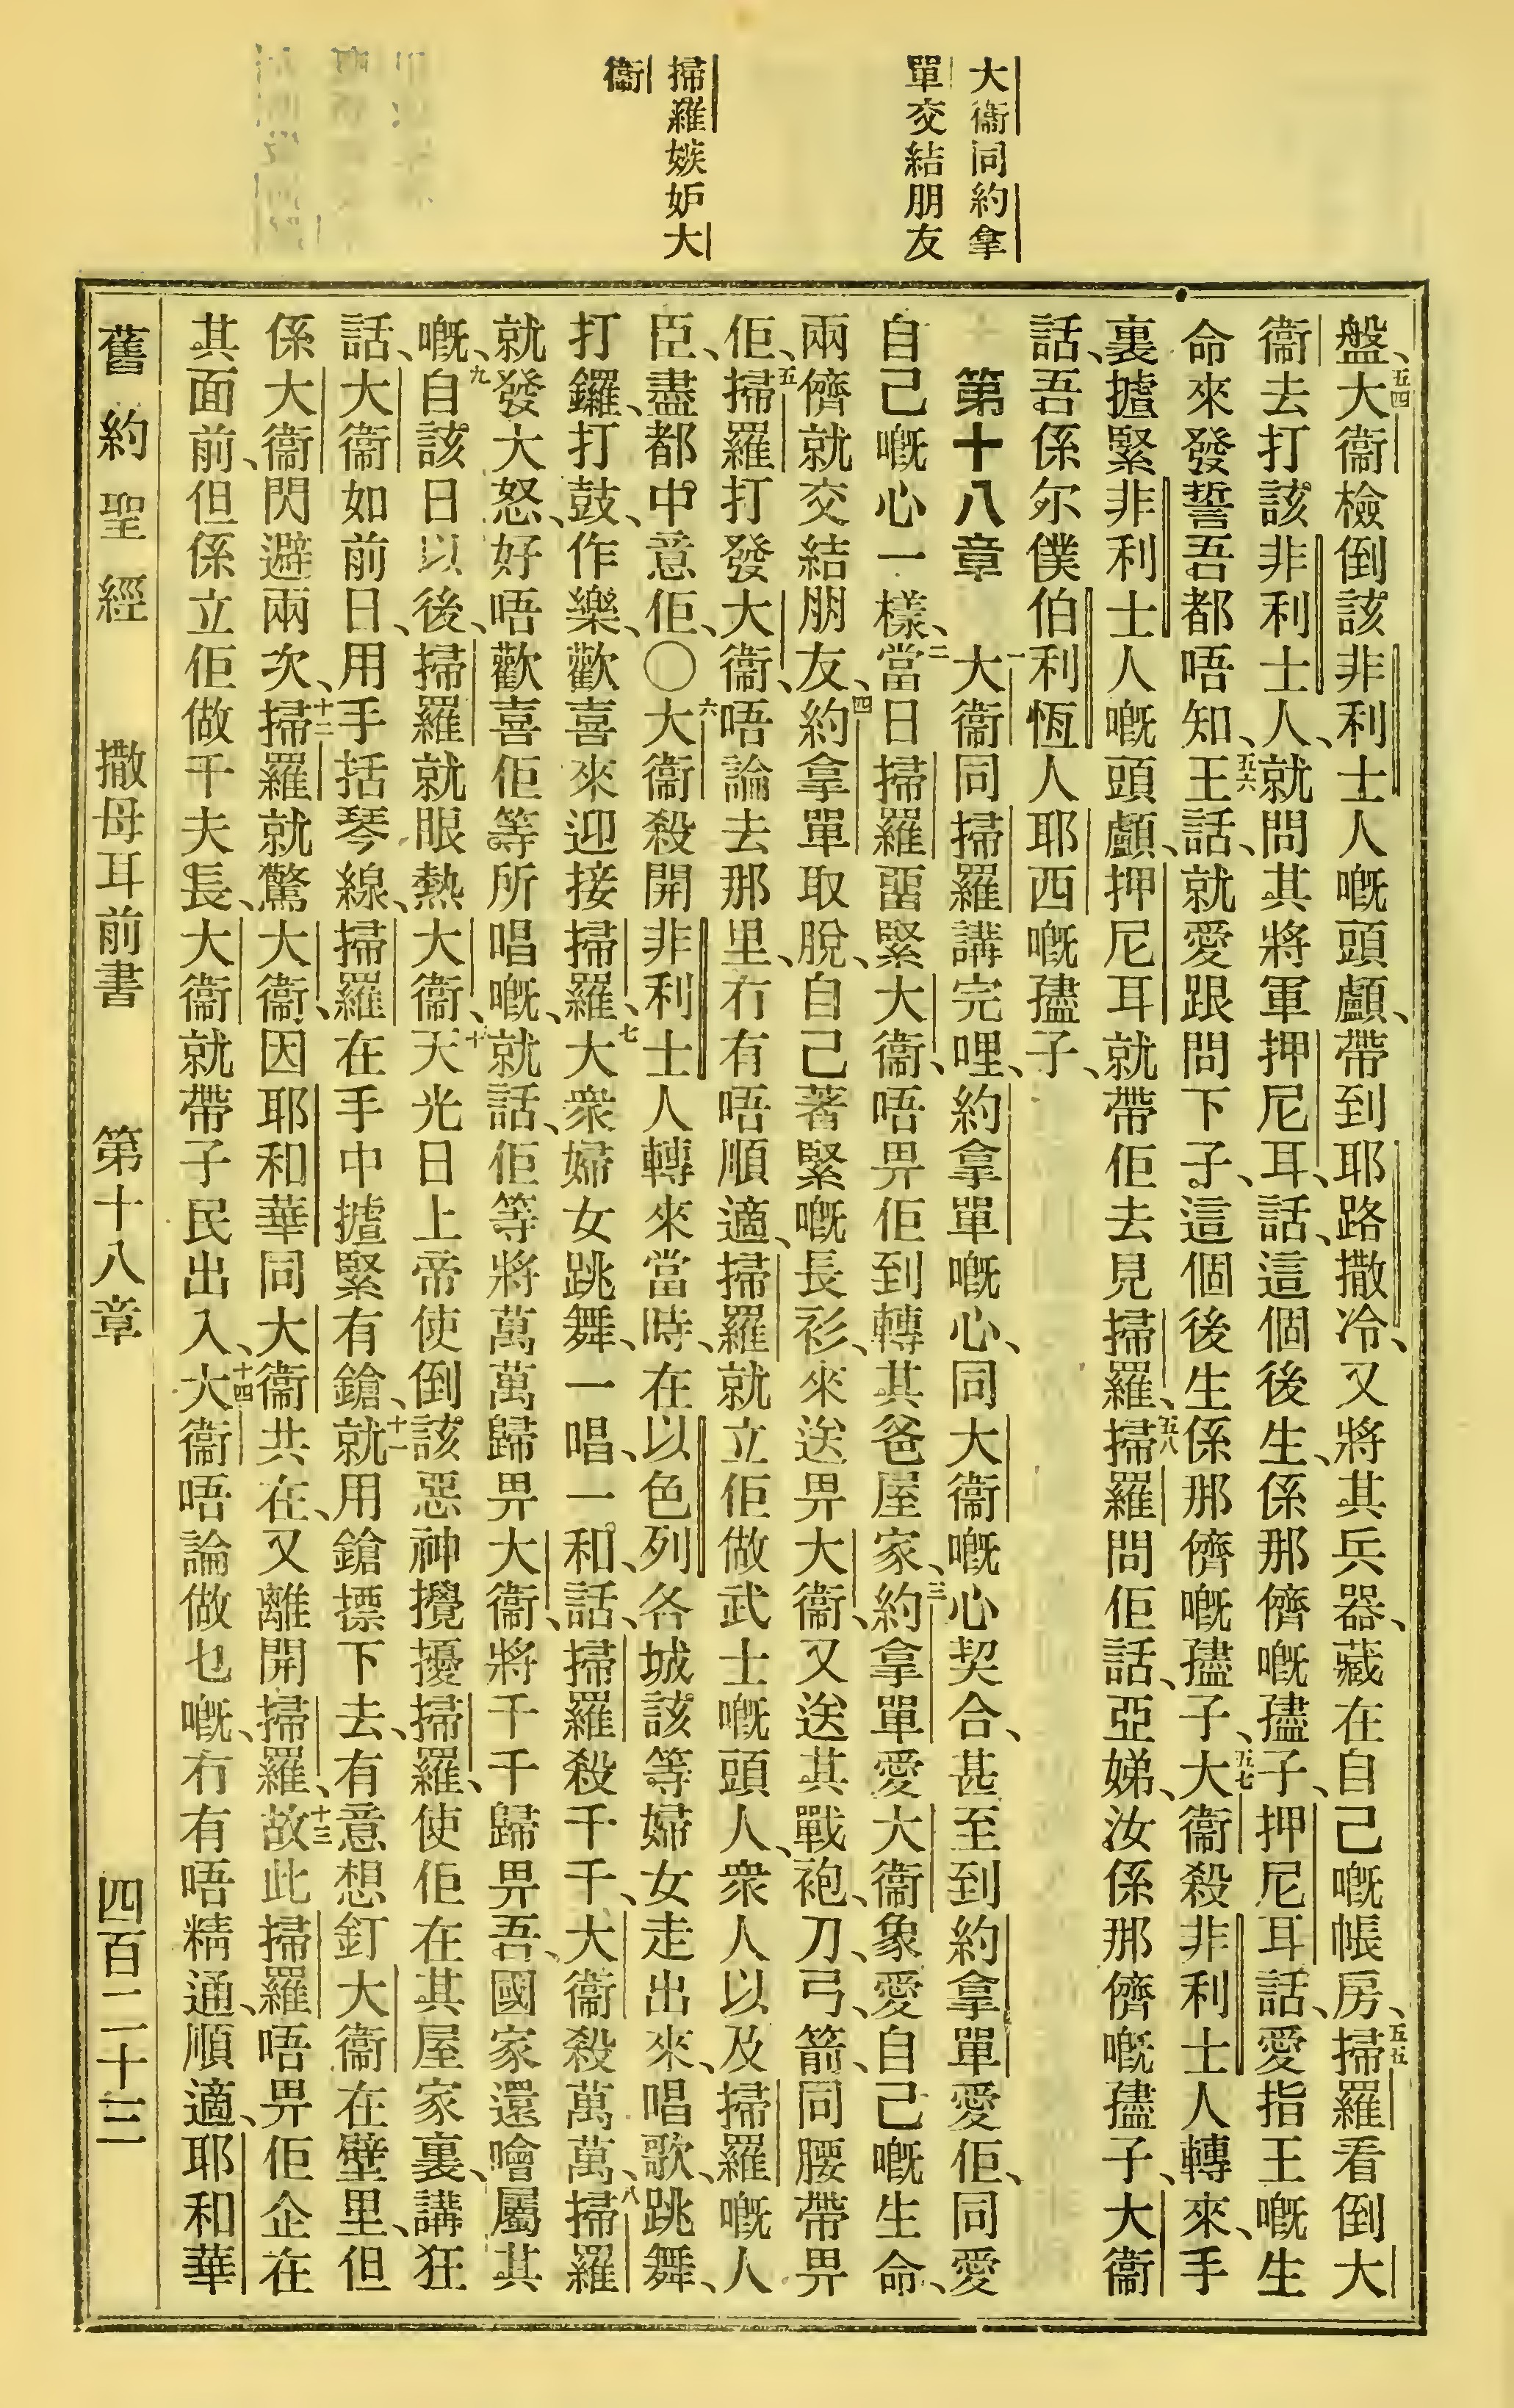 大衞同約拿
單交結朋友
掃羅嫉妒大
衞
盤、五四大衞檢倒該非利士人嘅頭顱、帶到耶路撒冷、又將其兵器、藏在自己嘅帳房、五五掃羅看倒大
衞去打該非利士人、就問其將軍押尼耳、話、這個後生、係那儕嘅孻子、押尼耳話、愛指王嘅生
命來發誓吾都唔知、五六王話、就愛跟問下子、這個後生係那儕嘅孻子、五七大衞殺非利士人轉來、手
裏揸緊非利士人嘅頭顱、押尼耳就帶佢去見掃羅、五八掃羅問佢話、亞娣、汝係那儕嘅孻子、大衞
話、吾係尔僕伯利恆人耶西嘅孻子、
第十八章 一大衞同掃羅講完哩、約拿單嘅心、同大衞嘅心契合、甚至到約拿單愛佢、同愛
自己嘅心一樣、二當日掃羅畱緊大衞、唔畀佢到轉其爸屋家、三約拿單愛大衞、象愛自己嘅生命、
兩儕就交結朋友、四約拿單取脫、自己著緊嘅長衫、來送畀大衞、又送其戰袍、刀、弓、箭、同腰帶畀
佢、五掃羅打發大衞、唔論去那里、冇有唔順適、掃羅就立佢做武士嘅頭人、衆人以及掃羅嘅人
臣、盡都中意佢、〇六大衞殺開非利士人轉來當時、在以色列各城該等婦女走出來、唱歌、跳舞、
打鑼、打鼓、作樂、歡喜來迎接掃羅、七大衆婦女跳舞、一唱、一和、話、掃羅殺千千、大衞殺萬萬、八掃羅
就發大怒、好唔歡喜佢等所唱嘅、就話、佢等將萬萬歸畀大衞、將千千歸畀吾、國家還噲屬其
嘅、九自該日以後、掃羅就眼熱大衞、十天光日上帝使倒該惡神攪擾掃羅、使佢在其屋家裏、講狂
話、大衞如前日、用手括琴線、掃羅在手中揸緊有鎗、十一就用鎗摽下去、有意想釘大衞在壁里、但
係大衞閃避兩次、十二掃羅就驚大衞、因耶和華同大衞共在、又離開掃羅、十三故此掃羅唔畀佢企在
其面前、但係立佢做千夫長、大衞就帶子民出入、十四大衞唔論做乜嘅、冇有唔精通、順適、耶和華
舊約聖經 撒母耳前書 第十八章 四百二十三